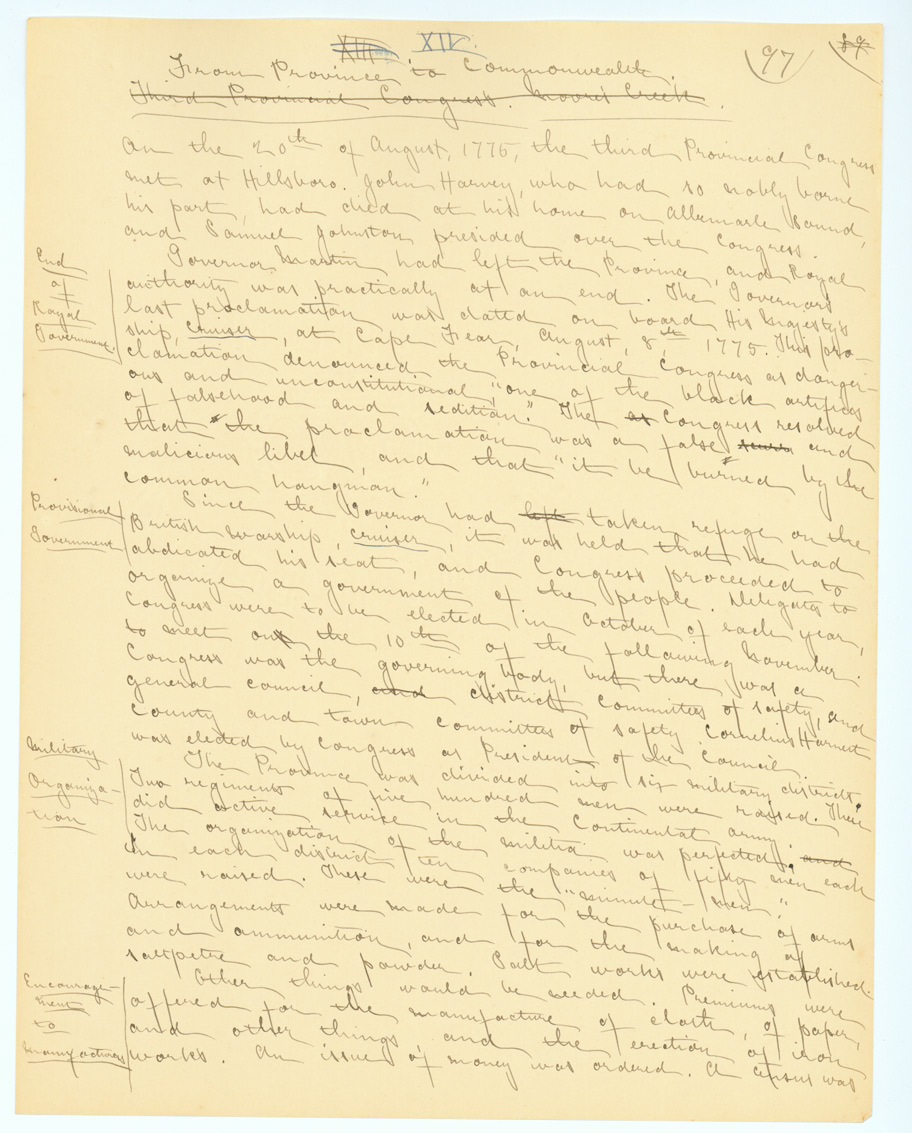 XIII XIV.
97 89
From Province to Commonwealth.
Third Provincial Congress. Moore's Creek.
On the 20th of August, 1775, the third Provincial Congress
met at Hillsboro. John Harvey, who had so nobly borne
his part, had died at his home on Albemarle Sound,
and Samuel Johnston presided over the Congress.
End
of
Royal
Government.
Governor Martin had left the Province, and Royal
authority was practically at an end. The Governors
last proclamation was dated on board His Majesty's
ship, Cruiser, at Cape Fear, August, 8th 1775. This pro-
clamation denounced the Provincial Congress as danger-
ous and unconstitutional, "one of the black artifices
of falsehood and sedition." The Congress resolved
that "the proclamation was a false and
malicious libel, and that "it be burned by the
common hangman."
Provisional
Government
Since the Governor had left taken refuge on the
British warship, cruiser, it was held that he had
abdicated his seat, and Congress proceeded to
organize a government of the people. Delegates to
Congress were to be elected in October of each year,
to meet on the 10th of the following November.
Congress was the governing body, but there was a
general council, and district committees of safety, and
County and town committees of safety. Cornelius Harnett
was elected by Congress as President of the Council.
Military
Organiza-
tion
The Province was divided into six military districts.
Two regiments of five hundred men were raised. Their
did active service in the Continental army.
The organization of the militia was perfected, and
in each district ten companies of fifty men each
were raised. These were the "minute-men."
Arrangements were made for the purchase of arms
and ammunition, and for the making of
saltpetre and powder. Salt works were established.
Encourage-
ment
to
Manufactures
Other things would be needed. Premiums were
offered for the manufacture of cloth, of paper,
and other things and the erection of iron
works. An issue of money was ordered. A census was